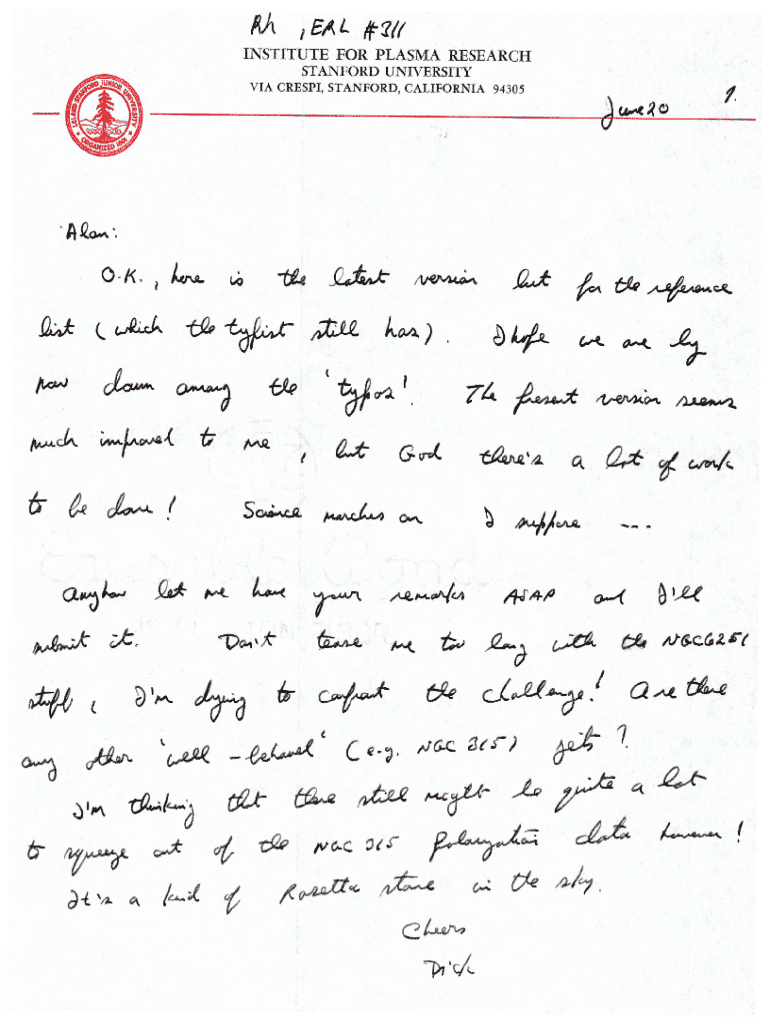 Rh, ERL #311
INSTITUTE FOR PLASMA RESEARCH
STANFORD UNIVERSITY
VIA CRESPI, STANFORD, CALIFORNIA 94305
LELAND STANFORD JUNIOR UNIVERSITY
ORGANIZED 1891
June 20
1.
Alan:
O.K., here is the latest version but for the reference
list (which the typist still has). I hope we are by
now down among the 'typos'. The present version seems
much improved to me, but God there's a lot of work
to be done! Science marches on I suppose ---
Anyhow let me have your remarks ASAP and I'll
submit it. Don't tease me too long with the NGC6251
stuff, I'm dying to confront the challenge! Are there
any other 'well-behaved' (e.g. NGC 315) jets?
I'm thinking that there still might be quite a lot
to squeeze out of the NGC 315 polarization data however!
It's a kind of Rosetta stone in the sky.
Cheers
Dick